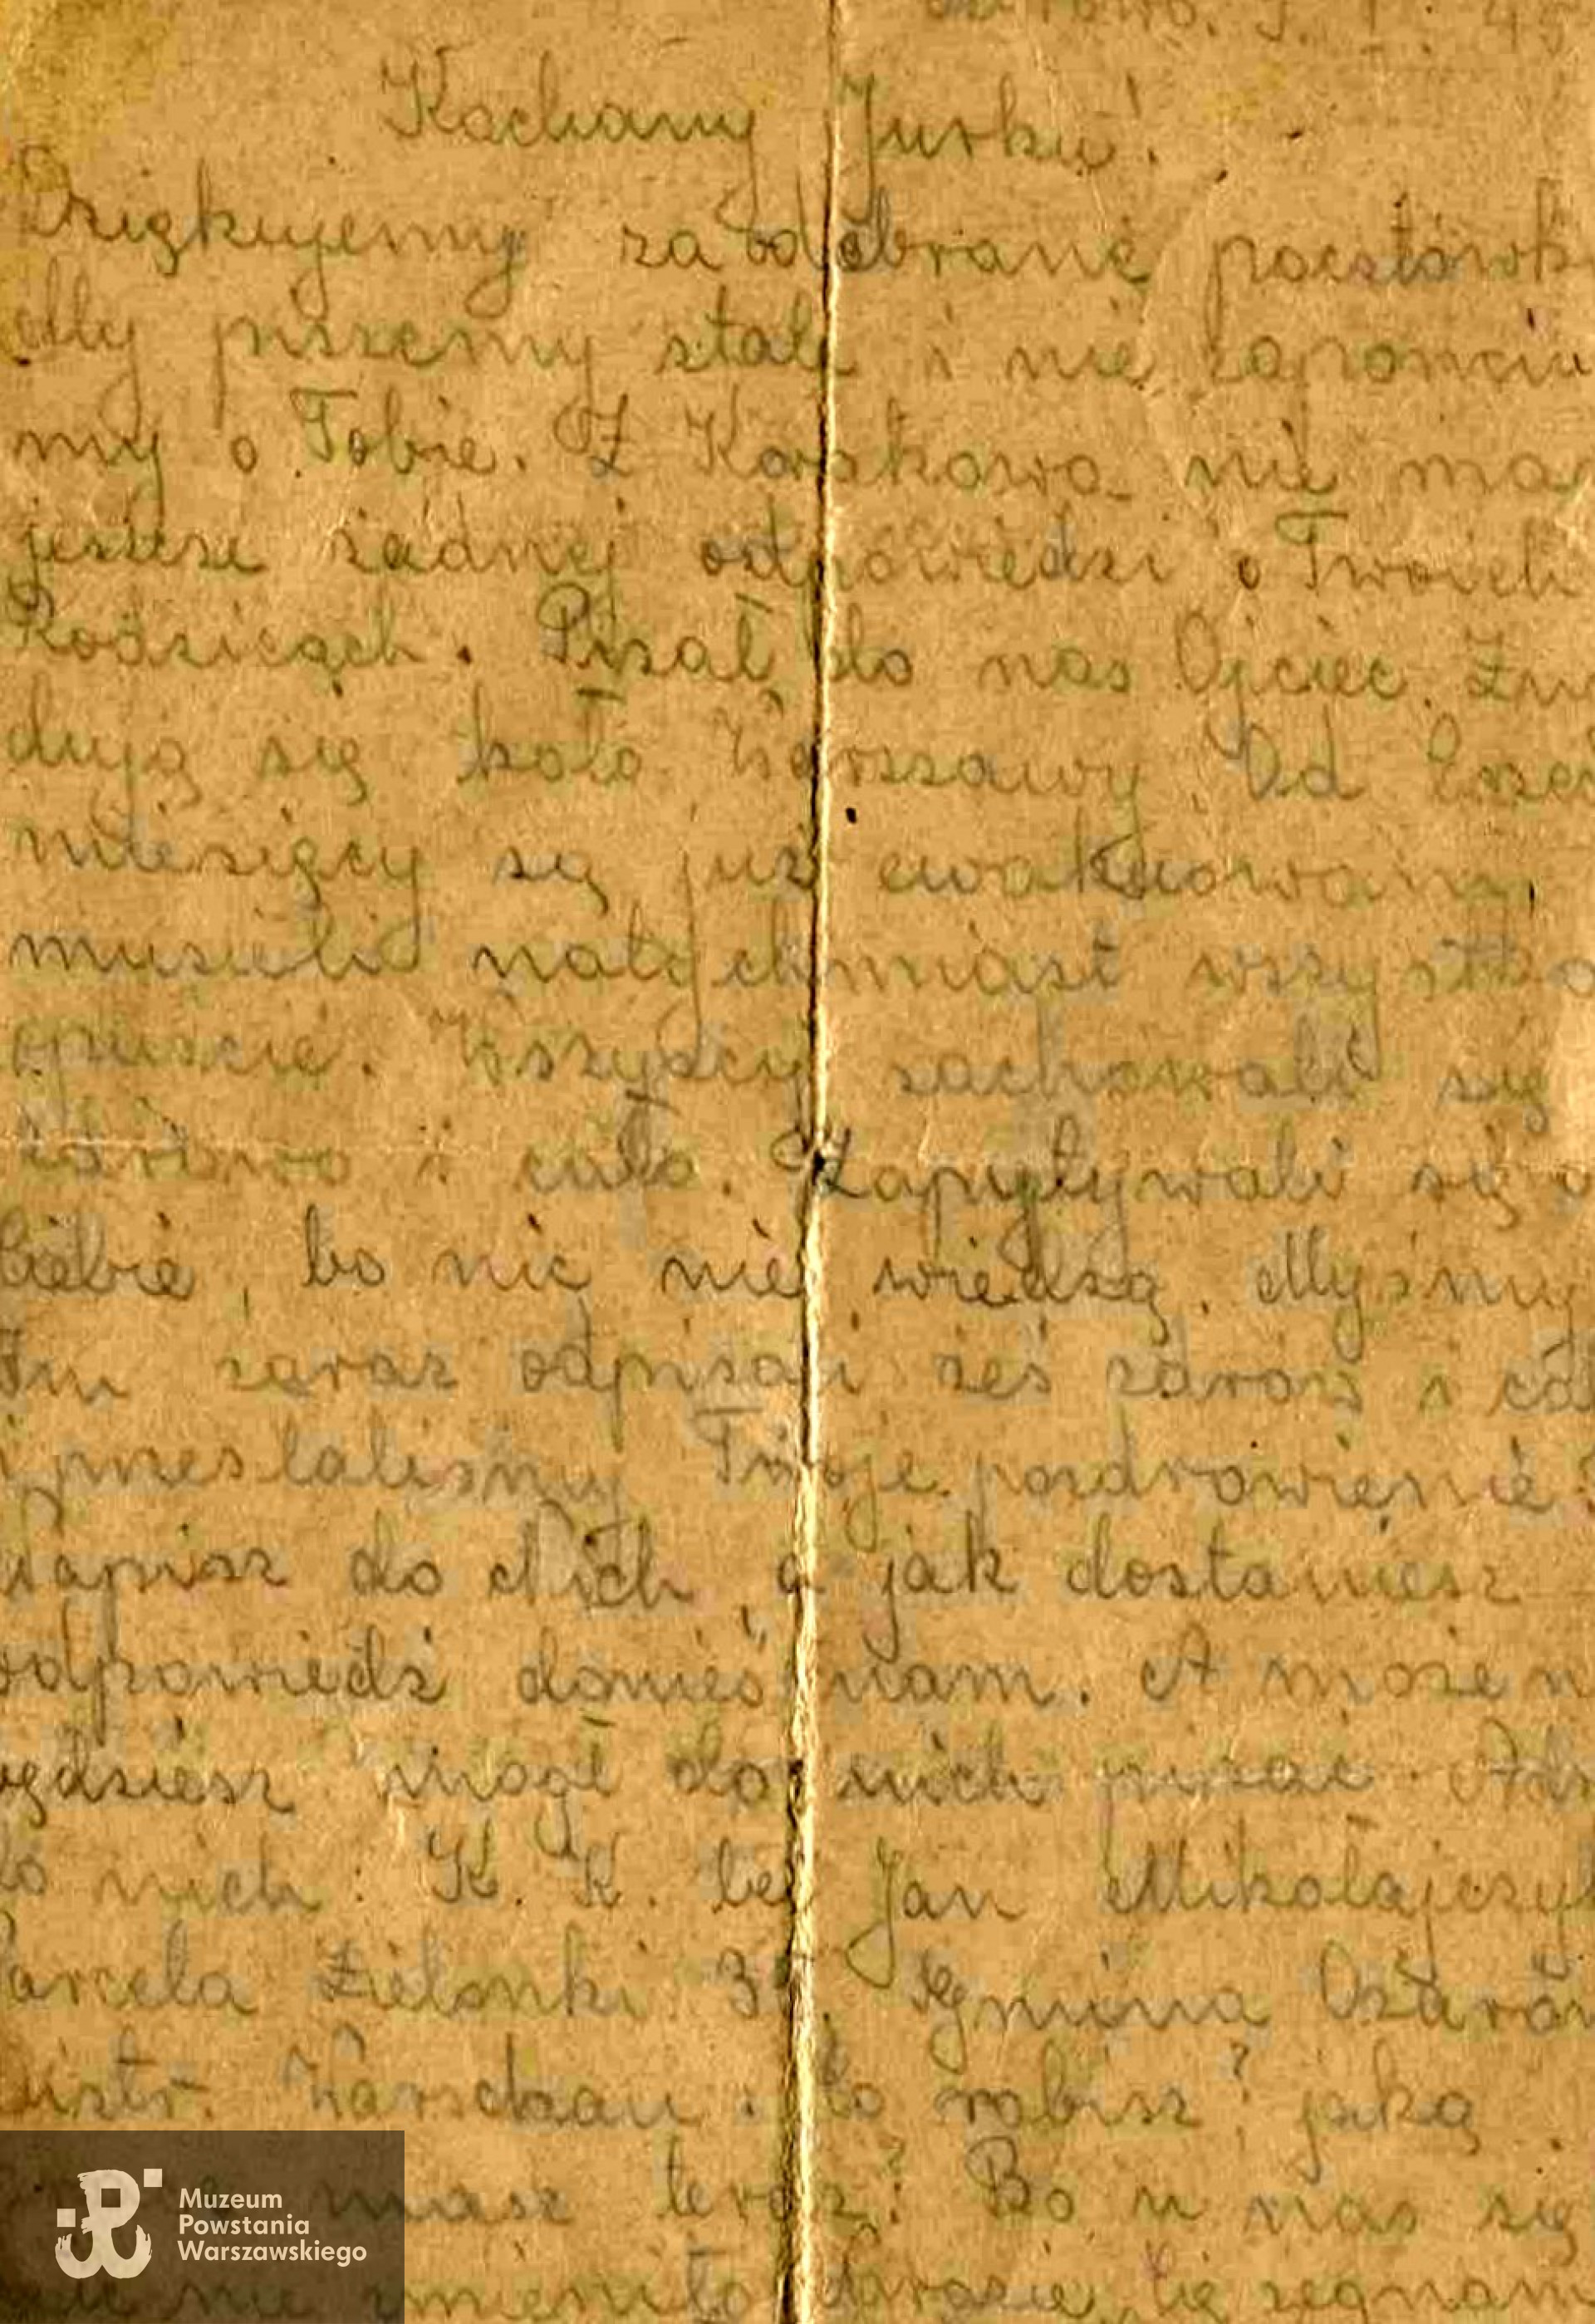 45
Kochany Jurku!
Dziękujemy za odebraną pocztówk
My piszemy stale i nie zapomin
my o Tobie. Z Krakowa nie ma
jeszcze żadnej odpowiedzi o Twoich
Rodzicach. Pisał do nas Ojciec. Zn
dują się koło Warszawy. Od
miesięcy są już ewakuowani,
musieli natychmiast wszystko
opuścić. Wszyscy zachowali się
zdrowo i cało. Zapytywali się o
Ciebie, bo nic nie wiedzą. Myśmy
Im zaraz odpisali żeś zdrów i cał
i przesłaliśmy Twoje pozdrowienie.
Napisz do Nich, a jak dostaniesz
odpowiedź donieś nam. A może n
ędziesz mógł do nich pisać. Adr
do nich: K. K. bei Jan Mikołajczyk
Parcela Zielonki Gmina Ożarów
Distr. Warschau. Co robisz? jaką
masz teraz? Bo u nas się
nic nie zmieniło. Narazie Cię żegnam
Muzeum
Powstania
Warszawskiego